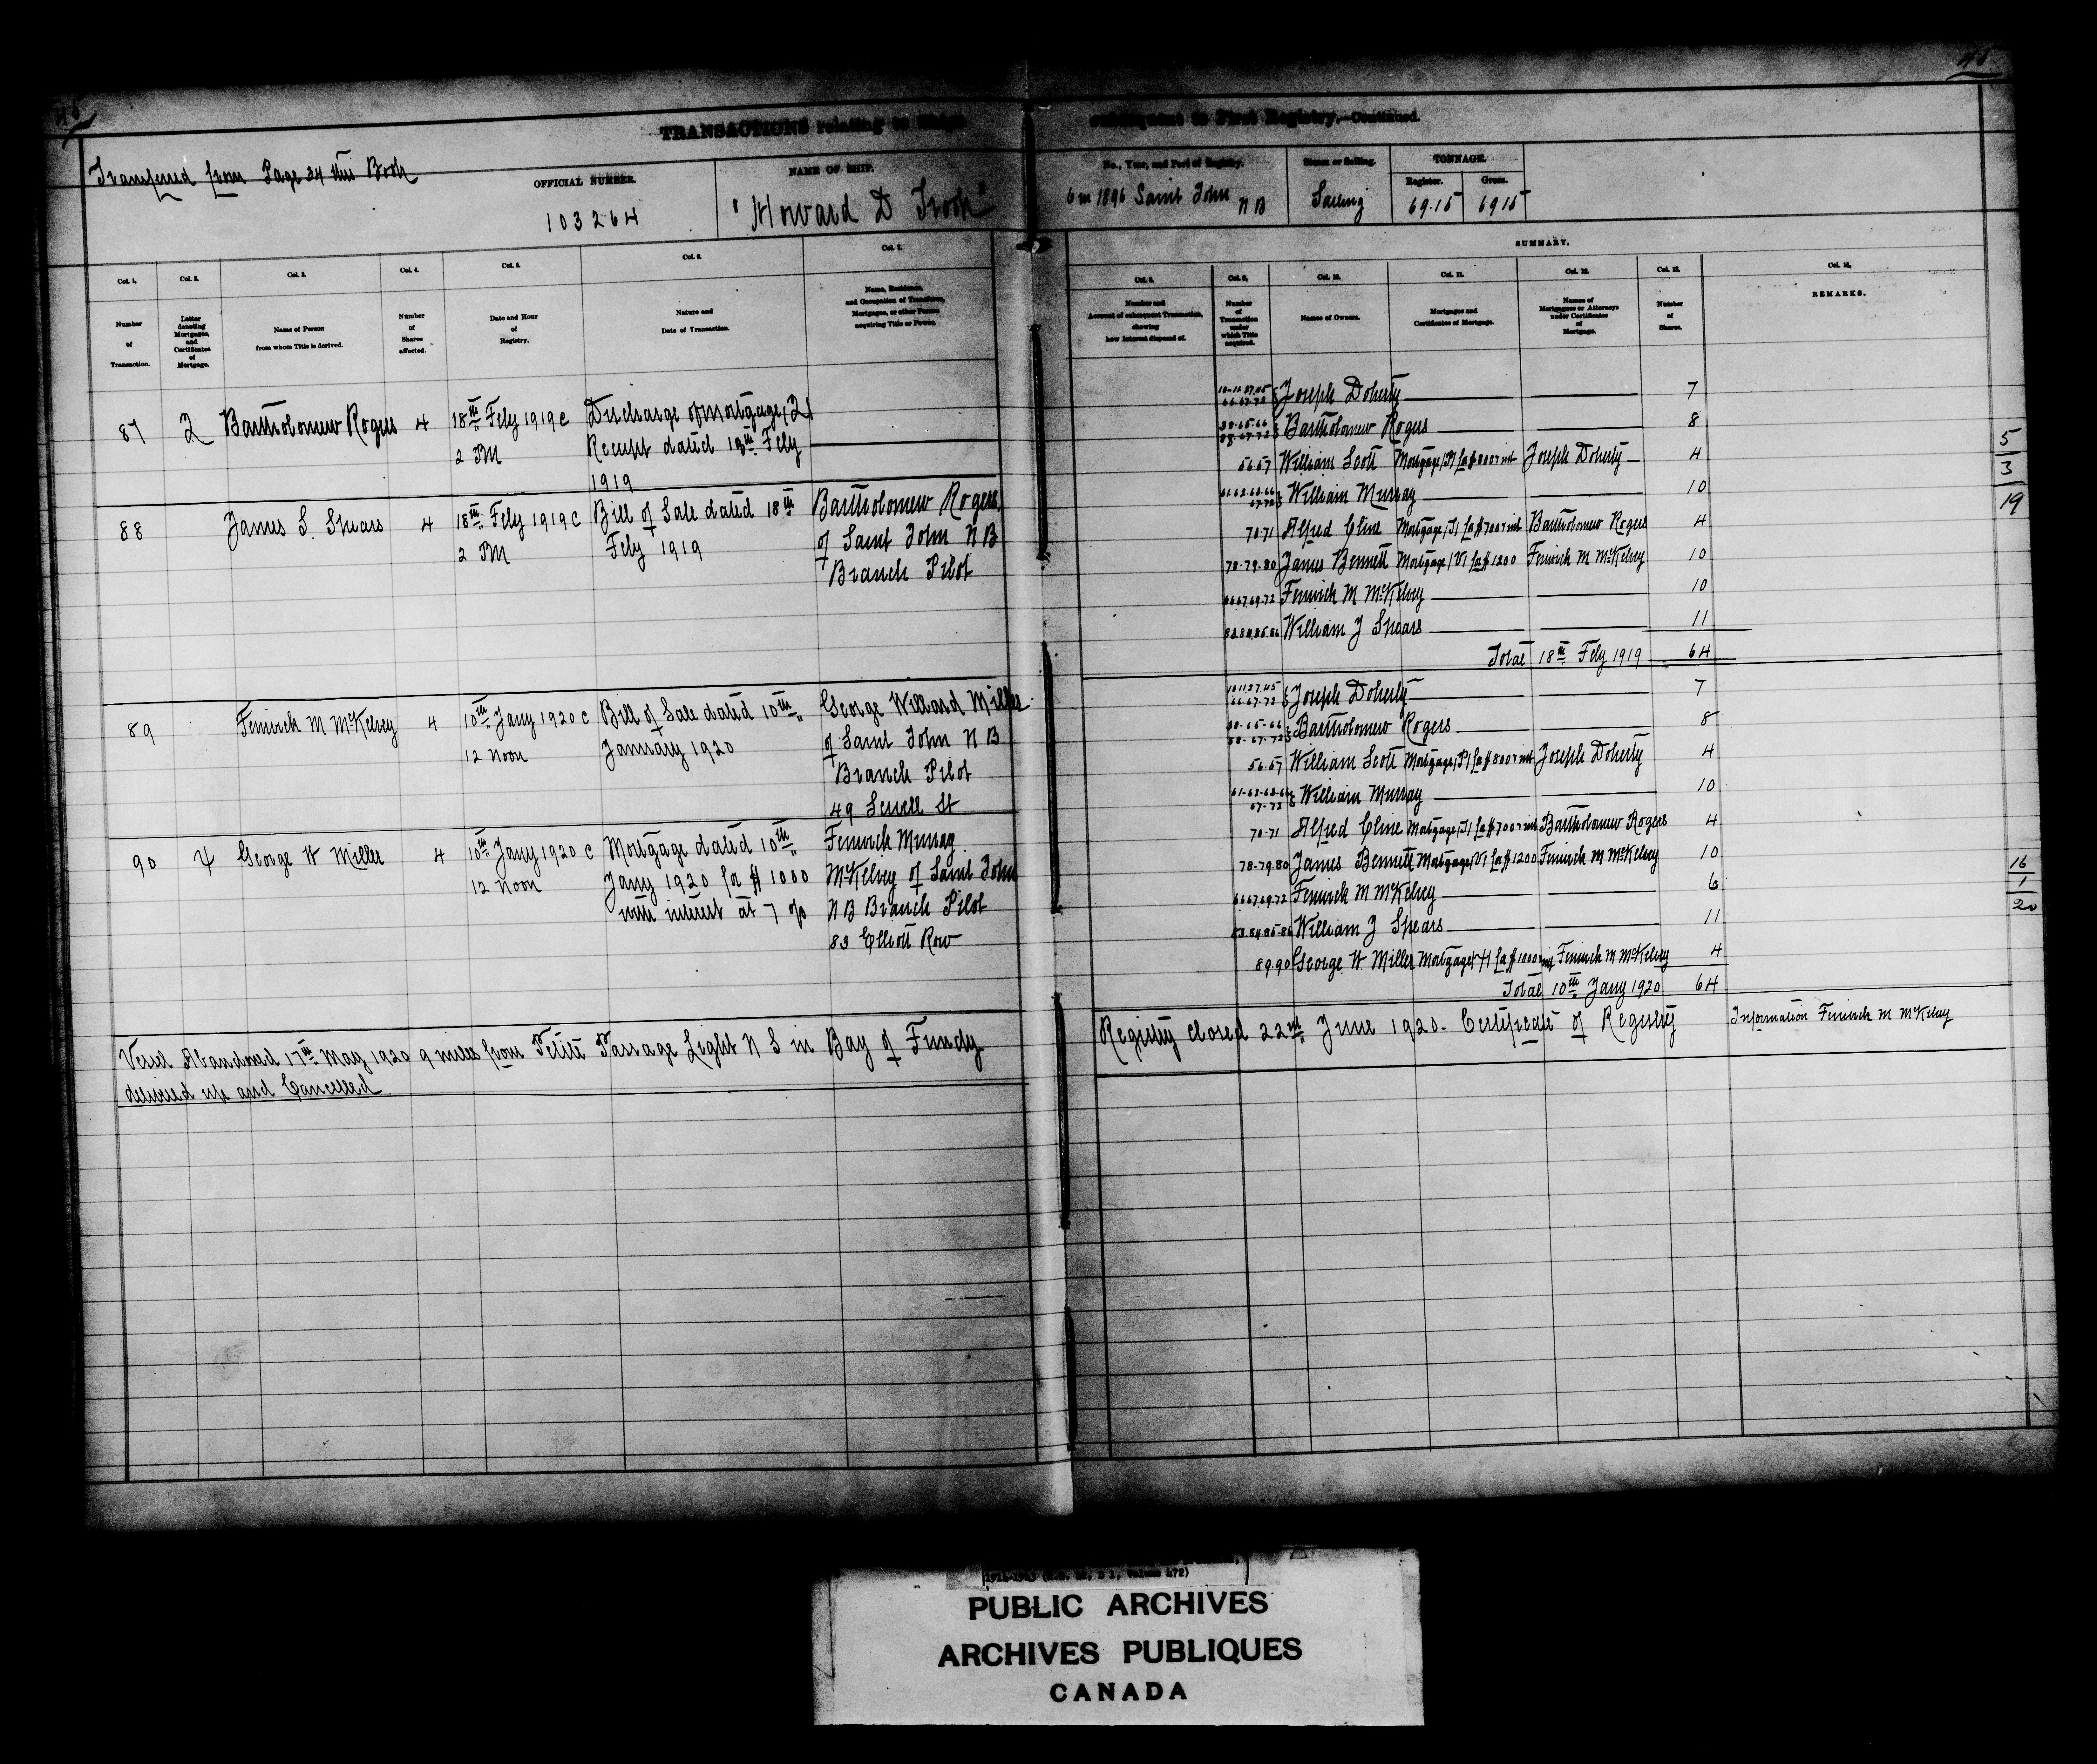 TRANSACTIONS relating to Ships subsequent to First Registry.—Continued.
Transferred from Page 24 this Book
OFFICIAL NUMBER.
103264
NAME OF SHIP.
"Howard D Troop"
No., Year, and Port of Registry.
6 in 1896 Saint John N B
Steam or Sailing.
Sailing
TONNAGE.
Register.
69.15
Gross.
69 15
SUMMARY.
Col. 1. Number of Transaction.
Col. 2. Letter denoting Mortgages, and Certificates of Mortgage.
Col. 3. Name of Person from whom Title is derived.
Col. 4. Number of Shares affected.
Col. 5. Date and Hour of Registry.
Col. 6. Nature and Date of Transaction.
Col. 7. Name, Residence, and Occupation of Transferee, Mortgagee, or other Person acquiring Title or Power.
Col. 8. Number and Account of subsequent Transaction, showing how Interest disposed of.
Col. 9. Number of Transaction under which Title acquired.
Col. 10. Names of Owners.
Col. 11. Mortgages and Certificates of Mortgage.
Col. 12. Names of Mortgagees or Attorneys under Certificates of Mortgage.
Col. 13. Number of Shares.
REMARKS.
87 Bartholomew Rogers 4 18th Feby 1919 @ Discharge of Mortgage
2 PM Receipt dated 18th Feby
1919
88 James S. Spears 4 18th Feby 1919 @ Bill of Sale dated 18th Bartholomew Rogers
2 PM Feby 1919 of Saint John N B
Branch Pilot
89 Fenwick M McKelvey 4 10th Jany 1920 @ Bill of Sale dated 10th George Willard Miller
12 Noon January 1920 of Saint John N B
Branch Pilot
49 Sewell St
90 George W Miller 4 10th Jany 1920 @ Mortgage dated 10th Fenwick Murray
12 Noon Jany 1920 for $1000 McKelvey of Saint John
with interest at 7 % N B Branch Pilot
83 Elliott Row
Vessel Abandoned 17th May 1920 9 miles from Petite Passage Light N S in Bay of Fundy
delivered up and Cancelled
Joseph Doherty 7
Bartholomew Rogers 8
56.57 William Scott Mortgage for $800 & int Joseph Doherty 4
William Murray 10
70-71 Alfred Cline Mortgage for $700 & int Bartholomew Rogers 4
78-79-80 James Bennett Mortgage (V) for $1200 Fenwick M McKelvey 10
66 67 69-72 Fenwick M McKelvey 10
83.84.85.86 William J Spears 11
Total 18th Feby 1919 64
Joseph Doherty 7
Bartholomew Rogers 8
56.57 William Scott Mortgage for $800 & int Joseph Doherty 4
William Murray 10
70-71 Alfred Cline Mortgage for $700 & int Bartholomew Rogers 4
78-79-80 James Bennett Mortgage (V) for $1200 Fenwick M McKelvey 10
66 67 69-72 Fenwick M McKelvey 6
83.84.85-86 William J Spears 11
89.90 George W Miller Mortgage for $1000 & int Fenwick M McKelvey 4
Total 10th Jany 1920 64
Registry closed 22nd June 1920. Certificate of Registry
Information Fenwick M McKelvey
5
3
19
16
1
20
PUBLIC ARCHIVES
ARCHIVES PUBLIQUES
CANADA